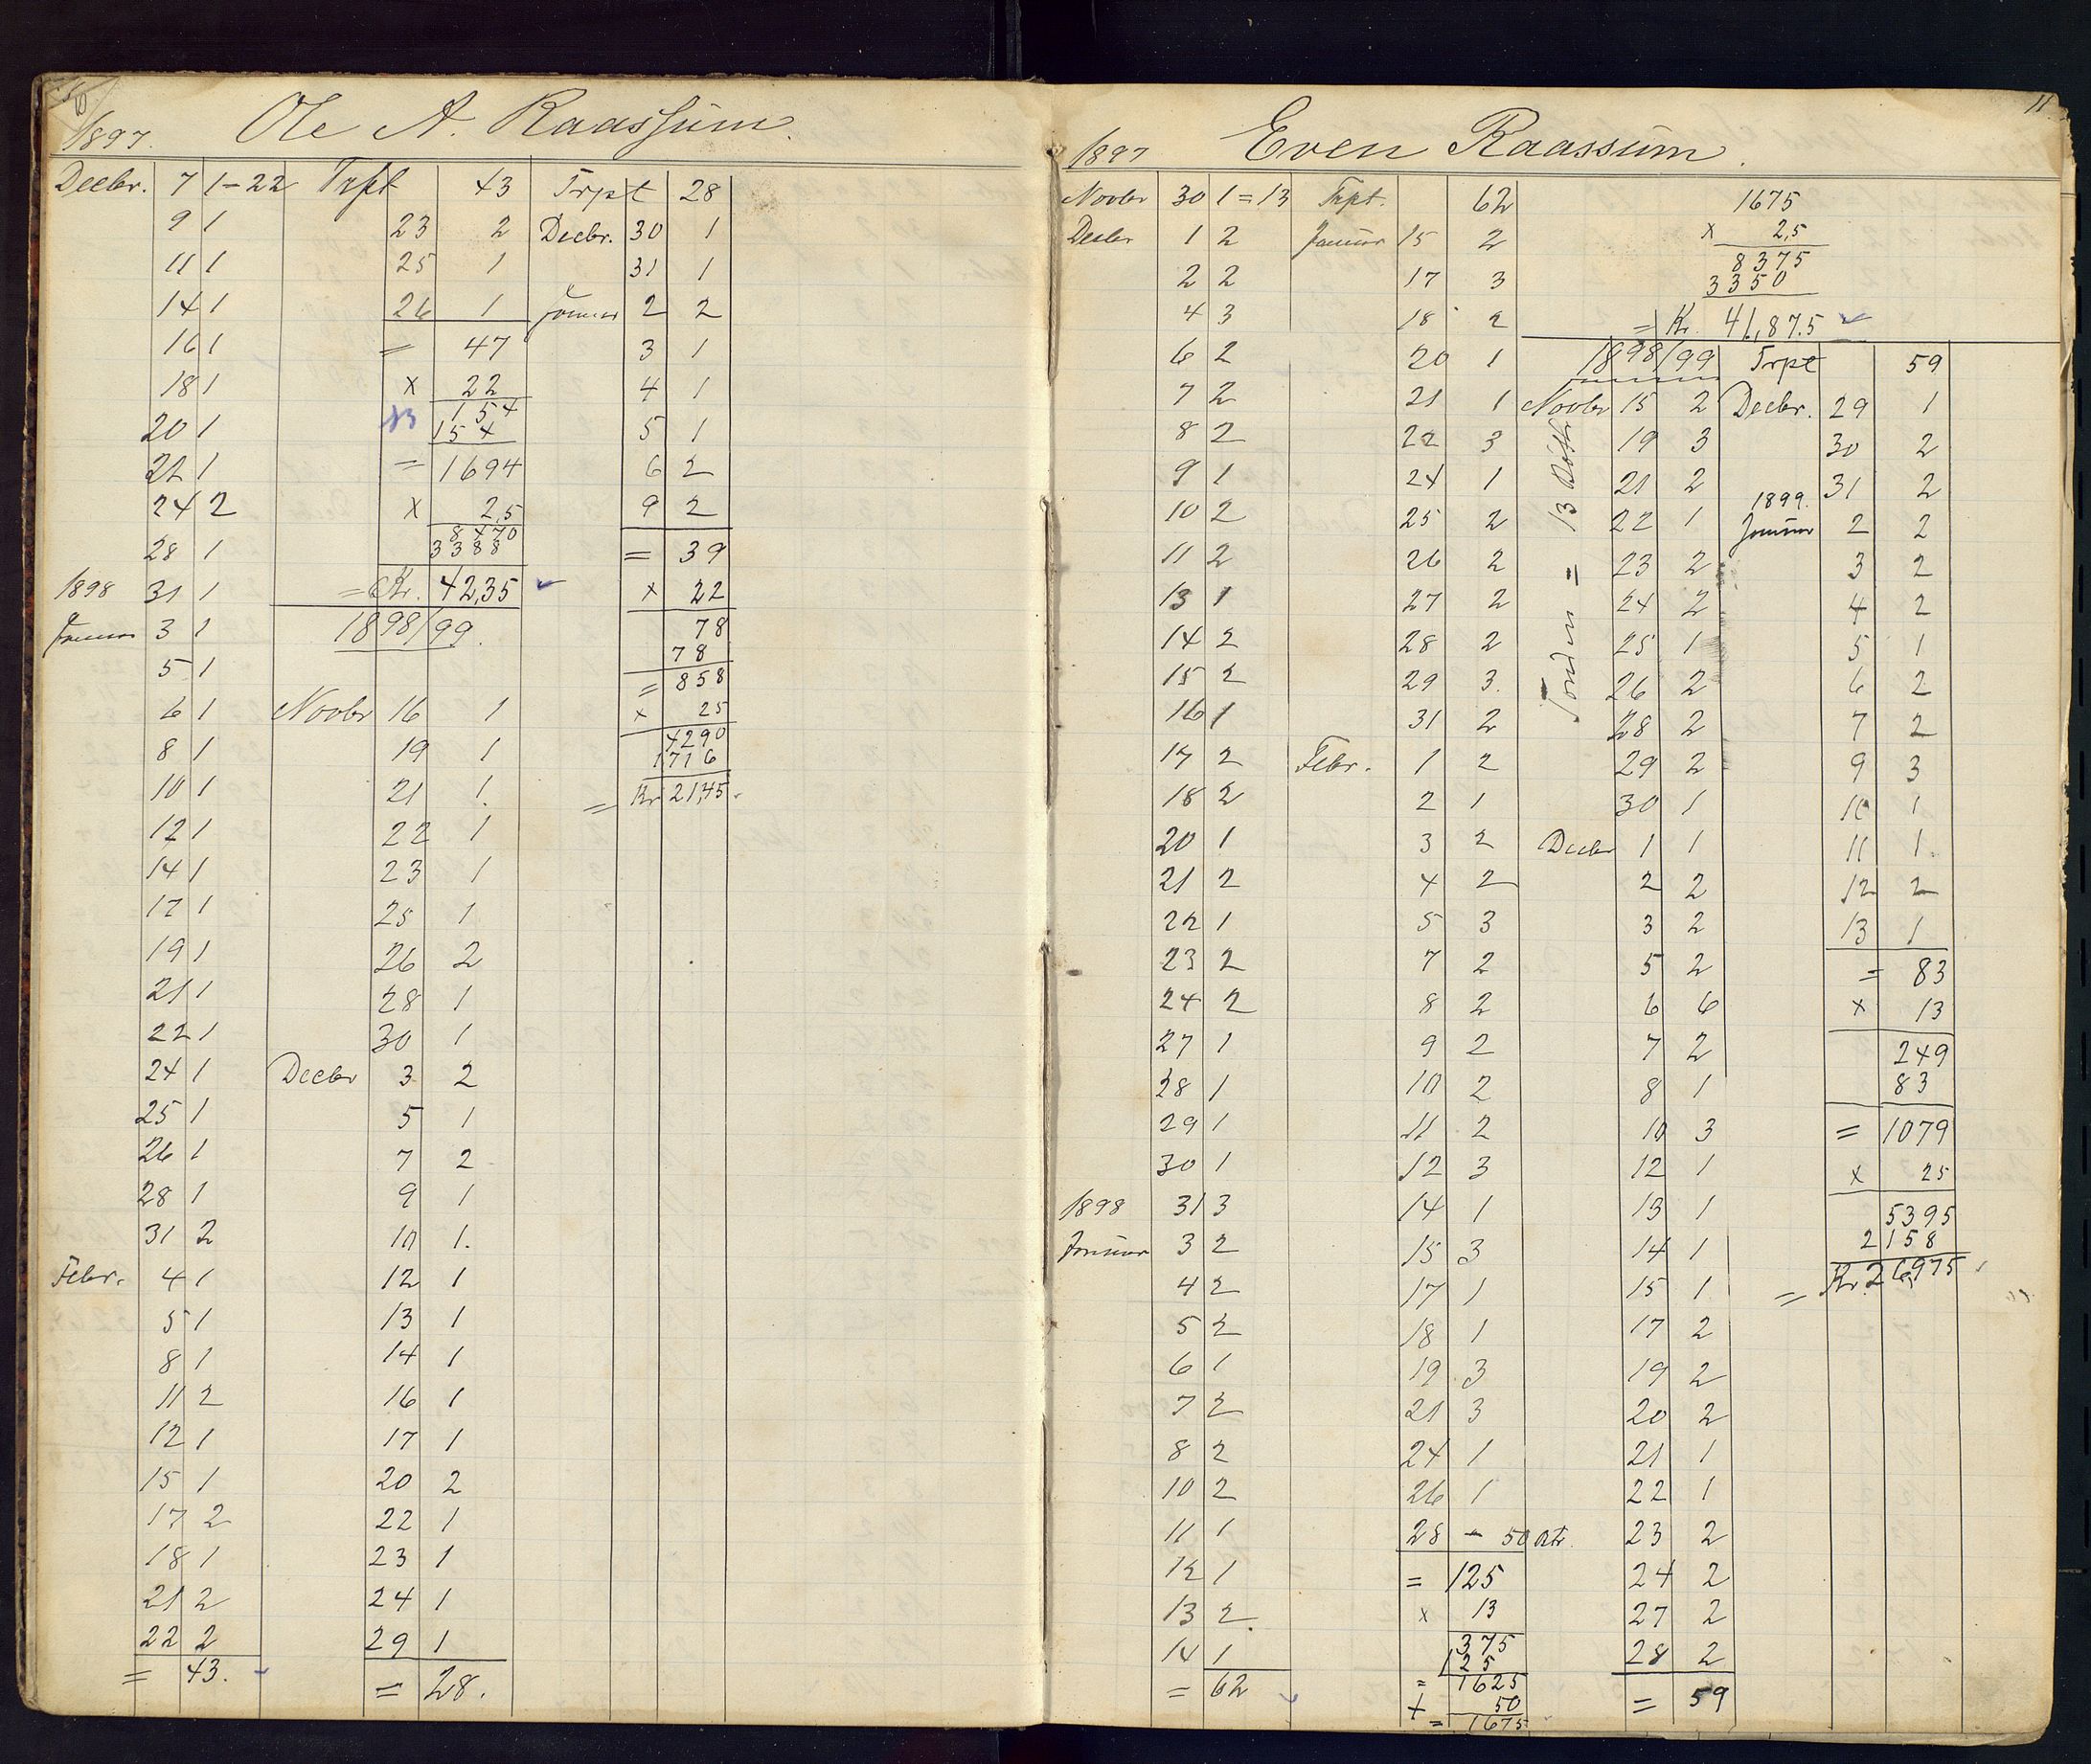 10
1897. Ole A. Raassum.
Decbr. 7 1-22 Trpt 43 Trpt 28
9 1 23 2 Decbr. 30 1
11 1 25 1 31 1
14 1 26 1 Januar 2 2
16 1 = 47 3 1
18 1 x 22 4 1
20 1 154 5 1
154
22 1 = 1694 6 2
24 2 x 2,5 9 2
8470
28 1 3388 = 39
1898 31 1 = Kr. 42,35 x 22
Januar 3 1 1898/99. 78
78
5 1 = 858
6 1 Novbr 16 1 x 25
4290
8 1 19 1 1716
10 1 21 1. = Kr 21,45.
12 1 22 1
14 1 23 1
17 1 25 1
19 1 26 2
21 1 28 1
22 1 30 1
24 1 Decbr 3 2
25 1 5 1
26 1 7 2
28 1 9 1
31 2 10 1.
Febr. 4 1 12 1
5 1 13 1
8 1 14 1
11 2 16 1
12 1 17 1
15 1 20 2
17 2 22 1
18 1 23 1
21 2 24 1
22 2 29 1
= 43. = 28.
11.
1897 Even Raassum.
Novbr 30 1=13 Trpt. 62 1675
Decbr 1 2 Januar 15 2 x 2,5
8375
2 2 17 3 3350
4 3 18 2 = Kr. 41,87.5
6 2 20 1 1898/99 Trpt 59
7 2 21 1 Novbr 15 2 Decbr. 29 1
8 2 22 3 19 3 30 2
9 1 24 1 21 2 31 2
1899.
10 2 25 2 22 1 Januar 2 2
11 2 26 2 23 2 3 2
13 1 27 2 24 2 4 2
14 2 28 2 25 1 5 1
15 2 29 3. 26 2 6 2
16 1 31 2 28 2 7 2
17 2 Febr. 1 2 29 2 9 3
18 2 2 1 30 1 10 1
20 1 3 2 Decbr 1 1 11 1.
21 2 4 2 2 2 12 2
22 1 5 3 3 2 13 1
23 2 7 2 5 2 = 83
24 2 8 2 6 6 x 13
27 1 9 2 7 2 249
28 1 10 2 8 1 83
29 1 11 2 10 3 = 1079
30 1 12 3 12 1 x 25
1898 31 3 14 1 13 1 5395
Januar 3 2 15 3 14 1 2158
4 2 17 1 15 1 = Kr. 26,975
5 2 18 1 17 2
6 1 19 3 19 2
7 2 21 3 20 2
8 2 24 1 21 1
10 2 26 1 22 1
11 1 28 - 50 23 2
12 1 = 125 24 2
13 2. x 13 27 2
375
14 1 125 28 2
= 62 = 1625 = 59
+ 50
= 1675
= 13